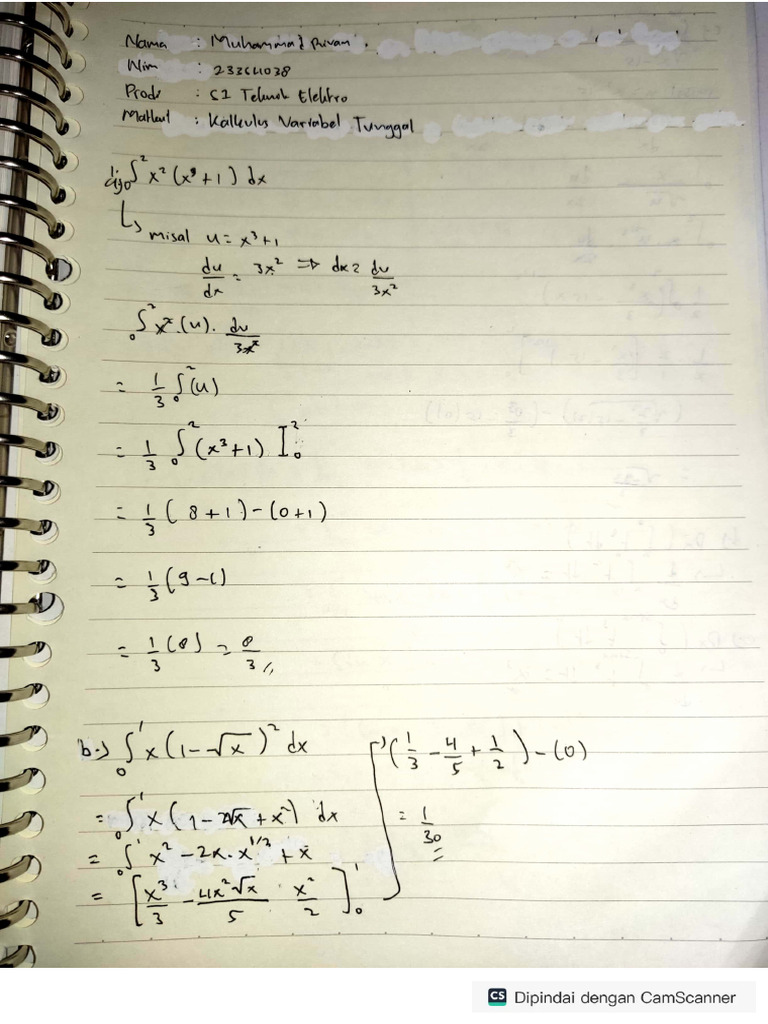 Nama : Muhammad Rivan
Nim : 23364038
Prodi : S1 Teknik Elektro
Matkul : Kalkulus Variabel Tunggal
1. a) ∫₀² x² (x³ + 1) dx
↳ misal u = x³ + 1
du/dx = 3x² ⇒ dx = du/3x²
₀∫² x² . (u) . du/3x²
= 1/3 ₀∫² (u)
= 1/3 ₀∫² (x³ + 1) ]₀²
= 1/3 (8 + 1) - (0 + 1)
= 1/3 (9 - 1)
= 1/3 (8) = 8/3 //
b.) ₀∫¹ x (1 - √x)² dx
= ₀∫¹ x (1 - 2√x + x²) dx
= ₀∫¹ x² - 2x . x^1/2 + x
= [x³/3 - 4x²√x/5 x²/2]₀¹
(1/3 - 4/5 + 1/2) - (0)
= 1/30
CS Dipindai dengan CamScanner